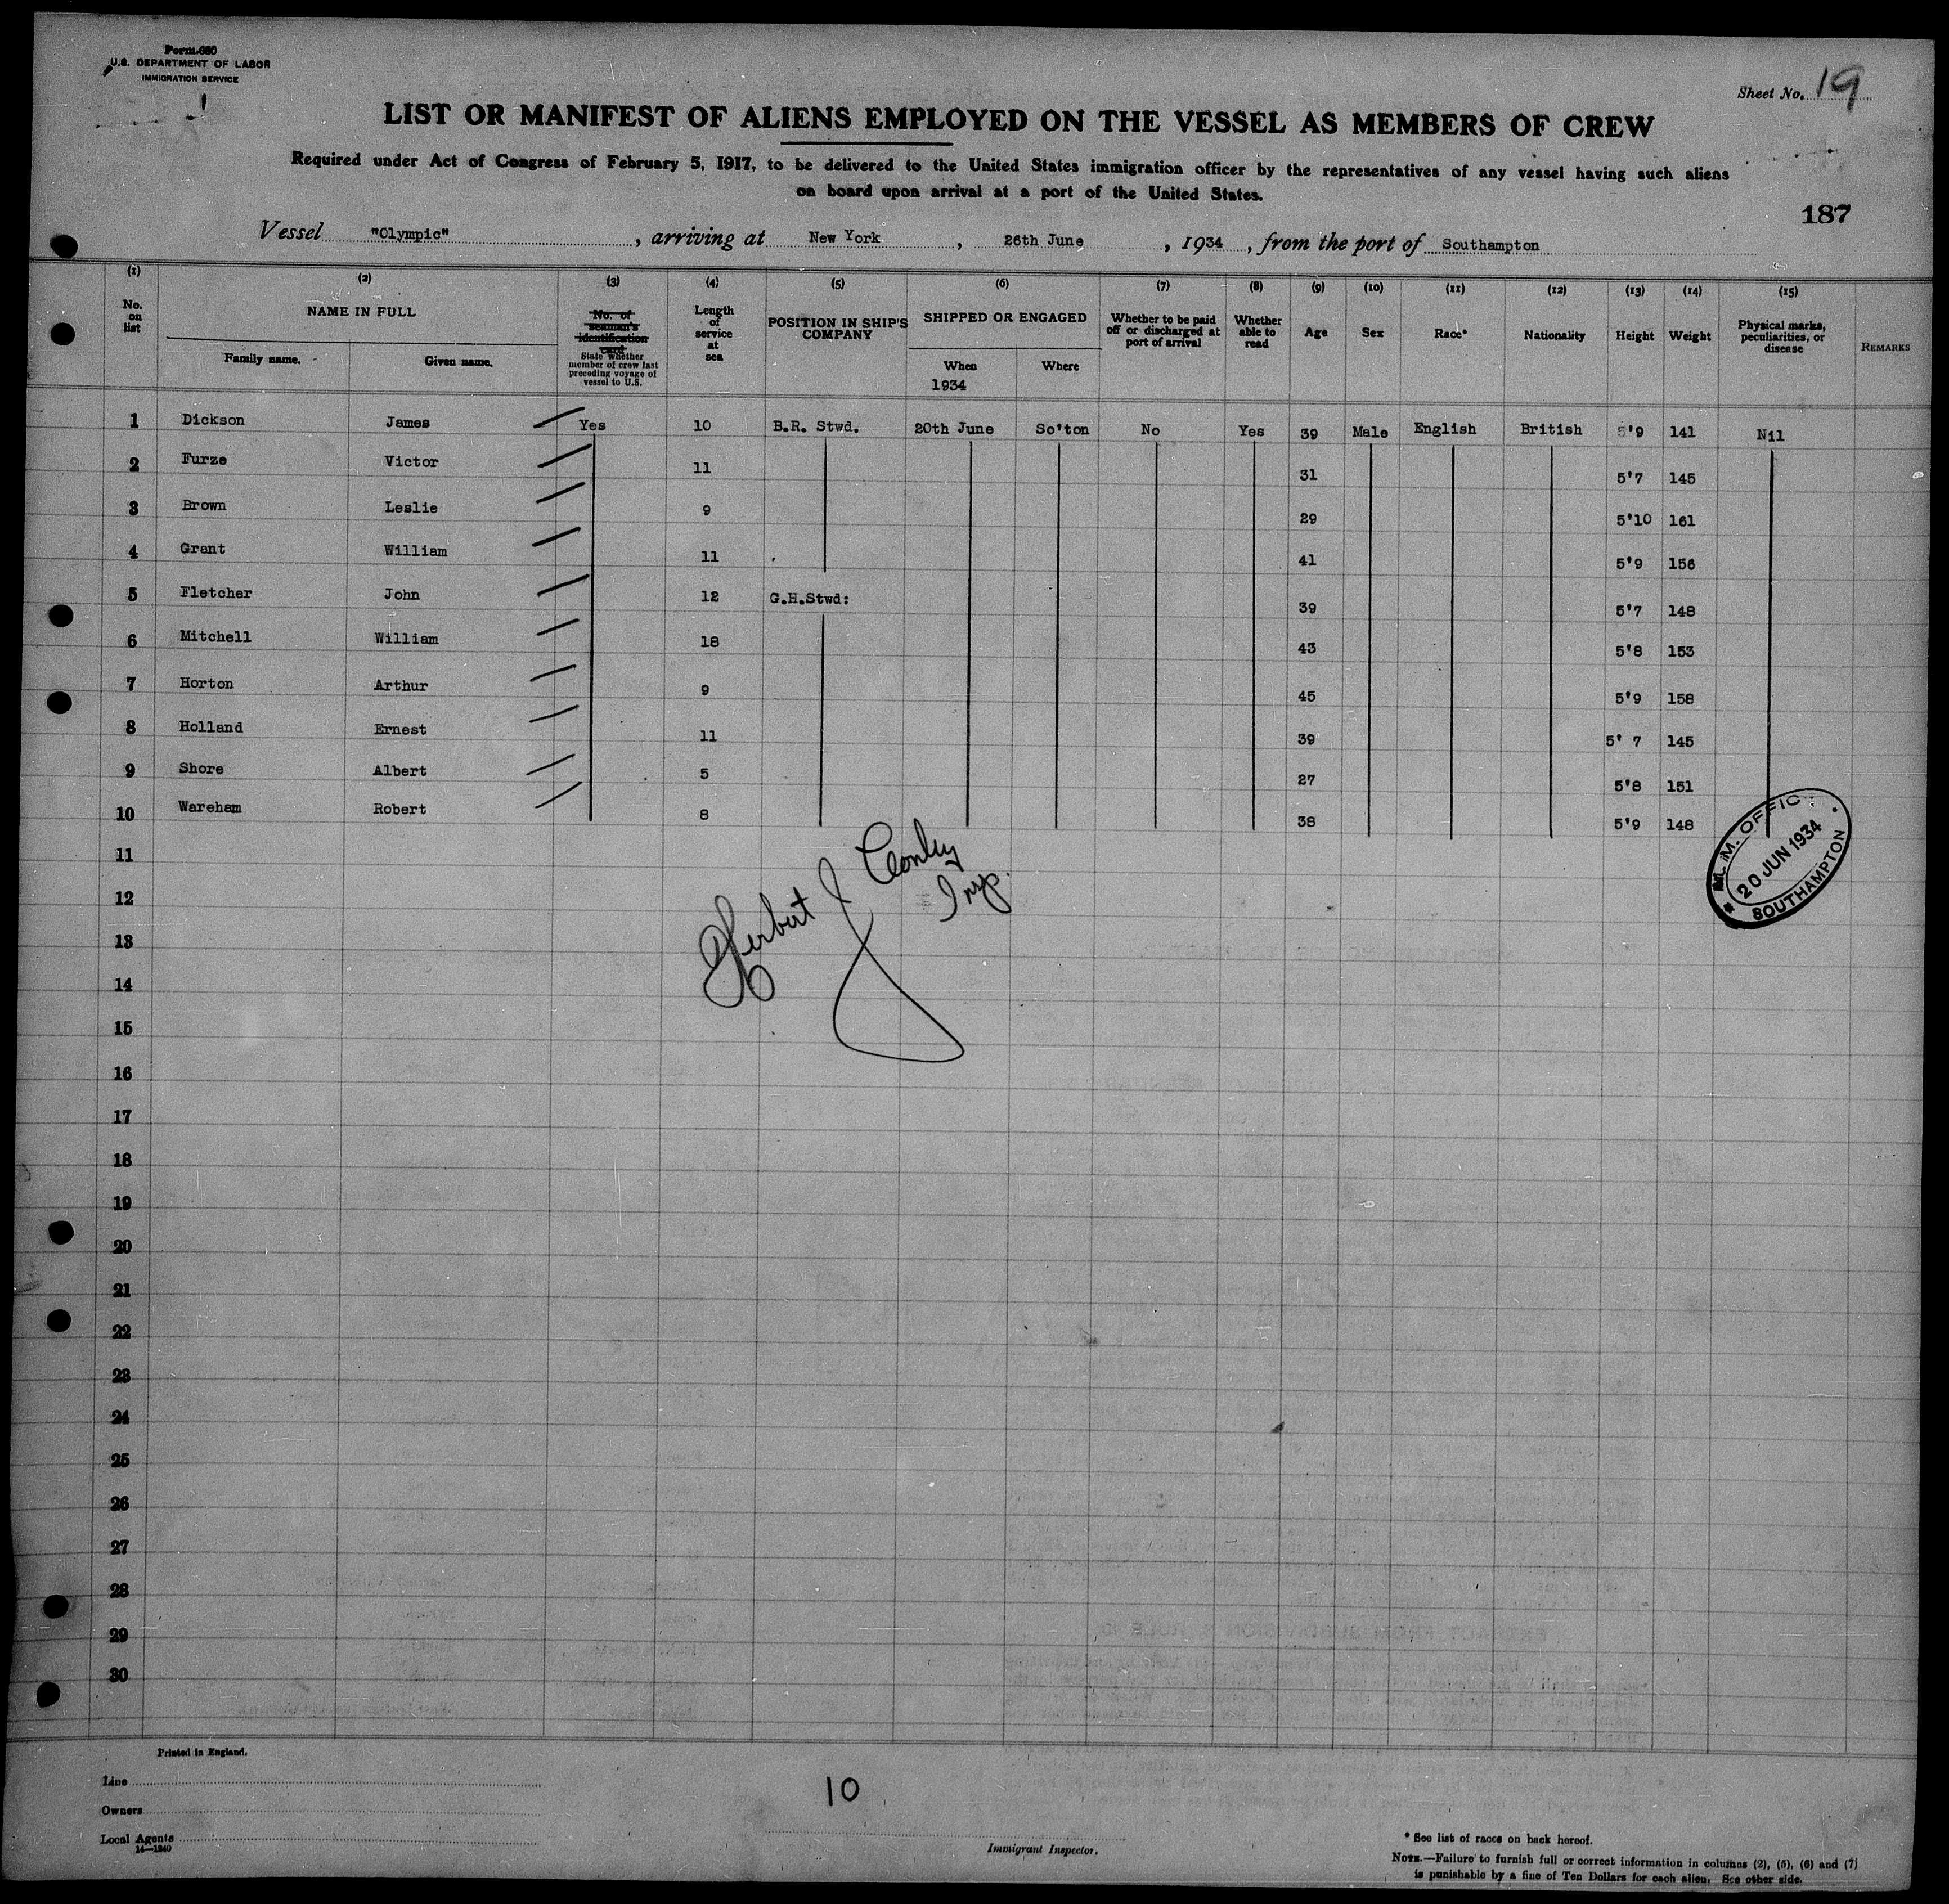 Form 680
U.S. DEPARTMENT OF LABOR
IMMIGRATION SERVICE
Sheet No. 19
LIST OR MANIFEST OF ALIENS EMPLOYED ON THE VESSEL AS MEMBERS OF CREW
Required under Act of Congress of February 5, 1917, to be delivered to the United States immigration officer by the representatives of any vessel having such aliens
on board upon arrival at a port of the United States.
187
Vessel "Olympic", arriving at New York, 26th June, 1934, from the port of Southampton
(1) (2) (3) (4) (5) (6) (7) (8) (9) (10) (11) (12) (13) (14) (15)
No. on list
NAME IN FULL
Family name. Given name.
No. of seaman's identification card
State whether member of crew last preceding voyage of vessel to U.S.
Length of service at sea
POSITION IN SHIP'S COMPANY
SHIPPED OR ENGAGED
When 1934 Where
Whether to be paid off or discharged at port of arrival
Whether able to read
Age
Sex
Race*
Nationality
Height
Weight
Physical marks, peculiarities, or disease
REMARKS
1 Dickson James Yes 10 B.R. Stwd. 20th June So'ton No Yes 39 Male English British 5'9 141 Nil
2 Furze Victor 11 31 5'7 145
3 Brown Leslie 9 29 5'10 161
4 Grant William 11 41 5'9 156
5 Fletcher John 12 G.H.Stwd: 39 5'7 148
6 Mitchell William 18 43 5'8 153
7 Horton Arthur 9 45 5'9 158
8 Holland Ernest 11 39 5' 7 145
9 Shore Albert 5 27 5'8 151
10 Wareham Robert 8 38 5'9 148
11
12
13
14
15
16
17
18
19
20
21
22
23
24
25
26
27
28
29
30
Herbert J Conley
Insp.
20 JUN 1934
SOUTHAMPTON
Printed in England.
Line
Owners
Local Agents
14—1240
10
Immigrant Inspector.
* See list of races on back hereof.
NOTE.—Failure to furnish full or correct information in columns (2), (5), (6) and (7)
is punishable by a fine of Ten Dollars for each alien. See other side.